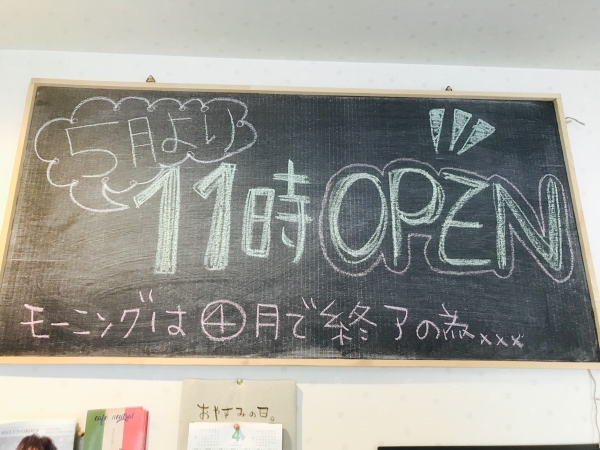 5月より
11時OPEN
モーニングは④月で終了の為xxx
おやすみの日。
4